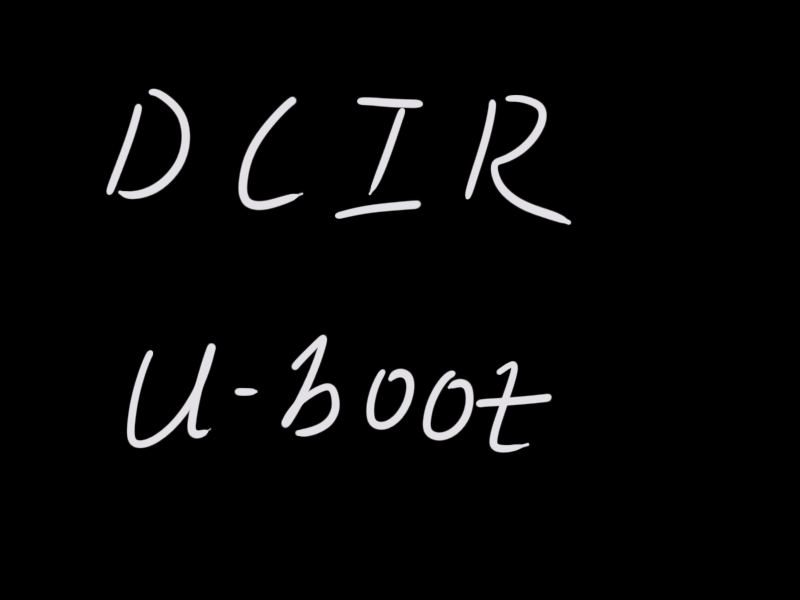 DCIR
U-boot